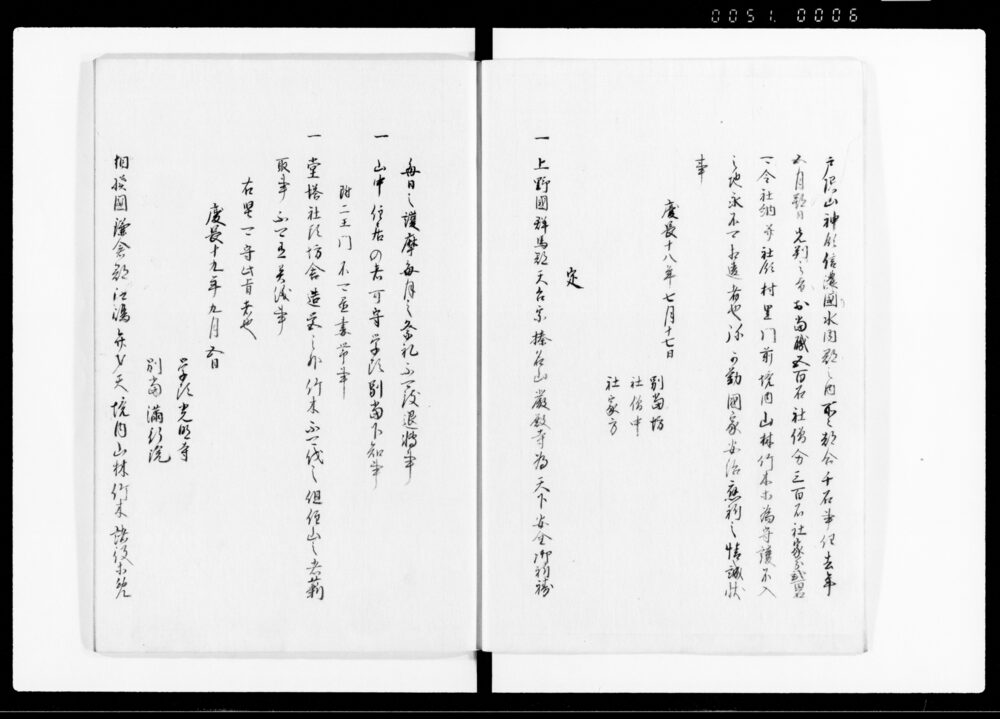 0051. 0006
戸隠山神領信濃國水内郡之内所々都合千石事任去年
五月朔日先判之旨於當職五百石社僧分三百石社家分弐百石
一令社納并社領村里門前境内山林竹木等為守護不入
之地永不可相違者也弥可勤國家安治懇祈之情誠状
事
慶長十八年七月十七日
別當坊
社僧中
社家方
定
一 上野國群馬郡天台宗榛名山巌殿寺為天下安全御祈祷
毎日之護摩毎月之祭礼不可致退轉事
一 山中住居の者可守学頭別當下知事
附二王門不可妻帯事
一 堂塔社頭坊舎造営之外竹木不可伐之但住山之者薪
取事不可有異儀事
右畢可守此旨者也
慶長十九年九月五日
学頭光明寺
別當満行院
相摸國鎌倉郡江嶋弁才天境内山林竹木諸役等免